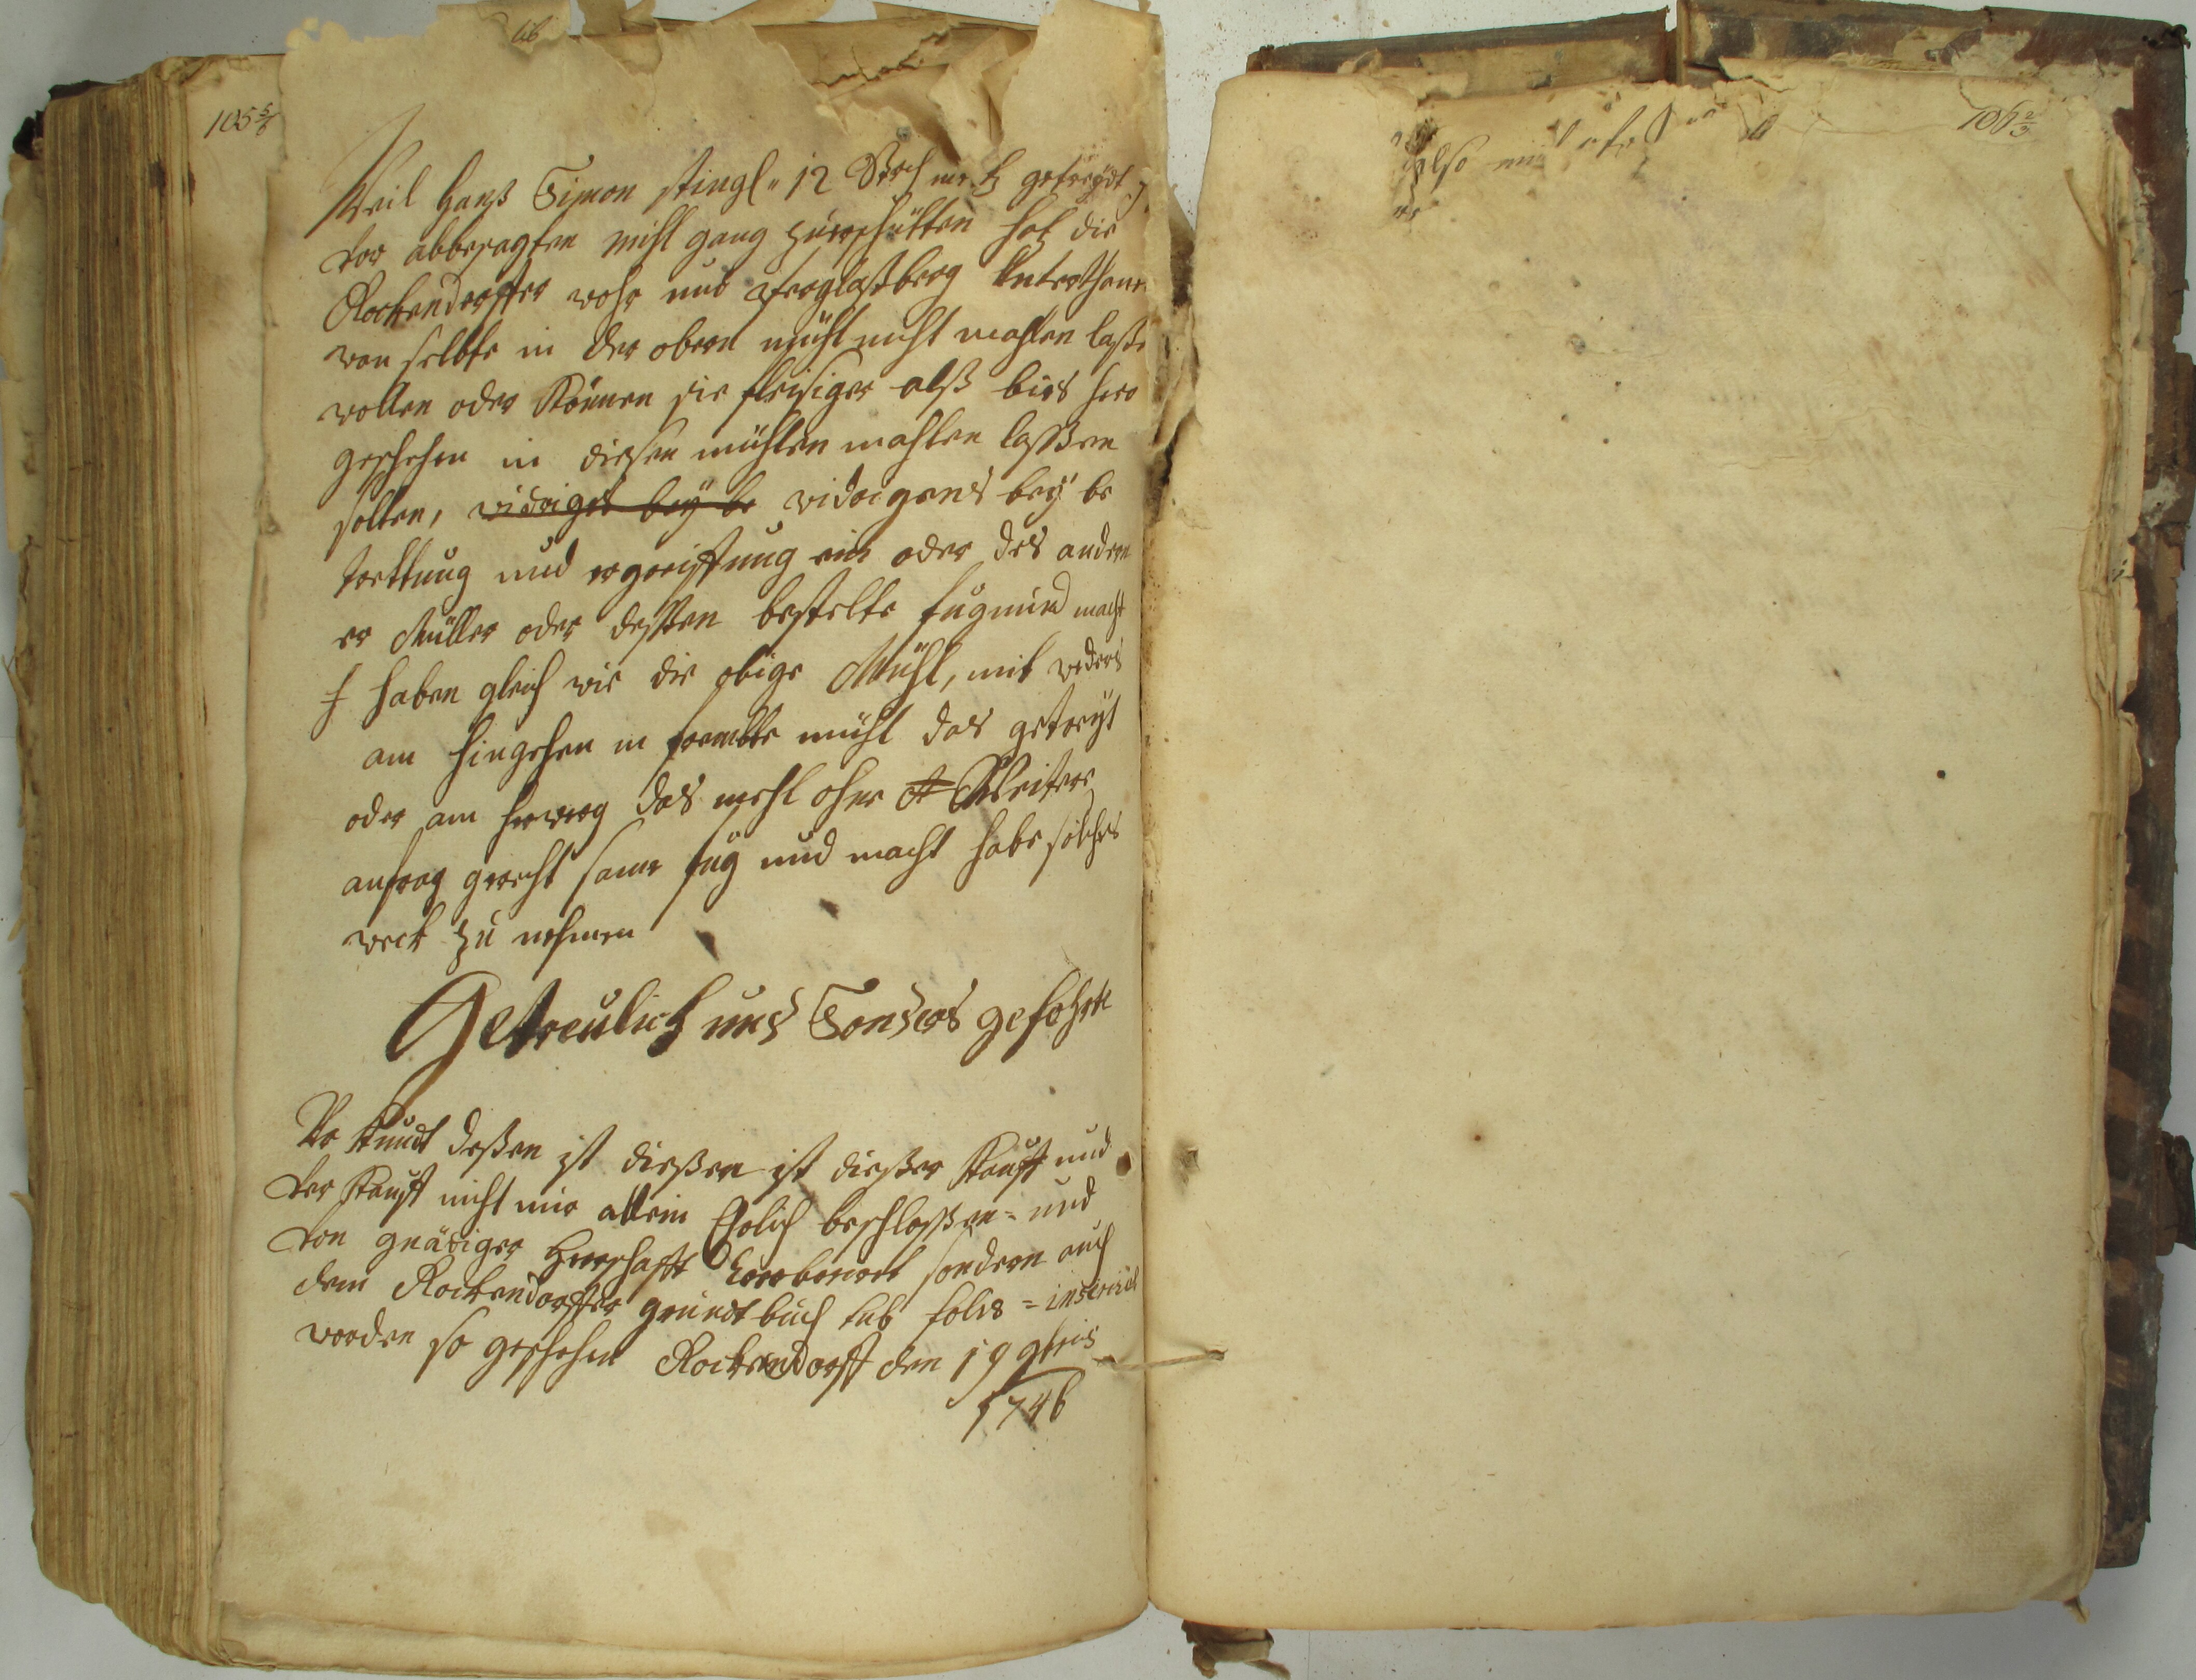 105 5/6
Weil Hanß Simon Stingl 12 getreydt
vor abbesagten mihl gang zu verschütten hat die
Rockendorffer wohr und Unterthann
von selbte in der obern mühl nicht mahlen laße
wollen oder können sie fleisiger alß bies hero
geschehen in diesen mühlen mahlen laßßen
solten, widriges bey be widrigens bey be
trettung und ergreiffung ein oder des andern
er Müller oder deßßen bestelte fug und macht
haben gleich wie die obige Mühl, mit
am hingehen in frembte mühl das getreyt
oder am herweg das mehl ohne Weitere
anfrag recht same fug und macht habe solches
weck zu nehmen
Getreulich und Sonders gefohrte
Uhrkundt deßen ist dießen ist dießer Kauff und
der Kaufft nicht nur allein Ehrlich beschloßßen = und
von gnädiger Herrschafft sondern auch
dem Rockendorffer grundtbuch sub folis =
worden so geschehen Rockendorff den 19 9bris
1746
106 2/3
also